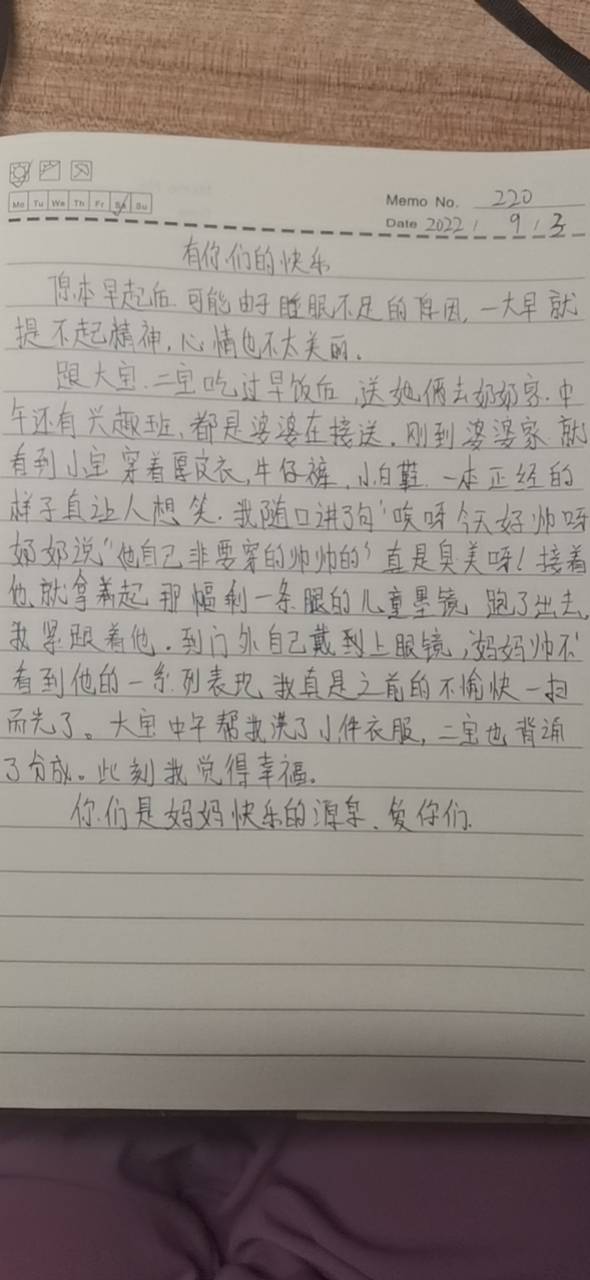 Mo Tu We Th Fr Sa Su
Memo No. 220
Date 2022 / 9 / 3
有你们的快乐
原本早起后.可能由于睡眠不足的原因,一大早就
提不起精神,心情也不太美丽.
跟大宝.二宝吃过早饭后,送她俩去奶奶家.中
午还有兴趣班,都是婆婆在接送.刚到婆婆家就
看到小宝穿着厚皮衣,牛仔裤,小白鞋.一本正经的
样子真让人想笑.我随口讲了句"唉呀今天好帅呀
奶奶说"他自己非要穿的帅帅的"真是臭美呀!接着
他就拿着起那幅剩一条腿的儿童墨镜跑了出去,
我紧跟着他.到门外自己戴到上眼镜,妈妈帅不
看到他的一系列表现我真是之前的不愉快一扫
而光了。大宝中午帮我洗了小件衣服,二宝也背诵
了分成。此刻我觉得幸福。
你们是妈妈快乐的源泉、爱你们.